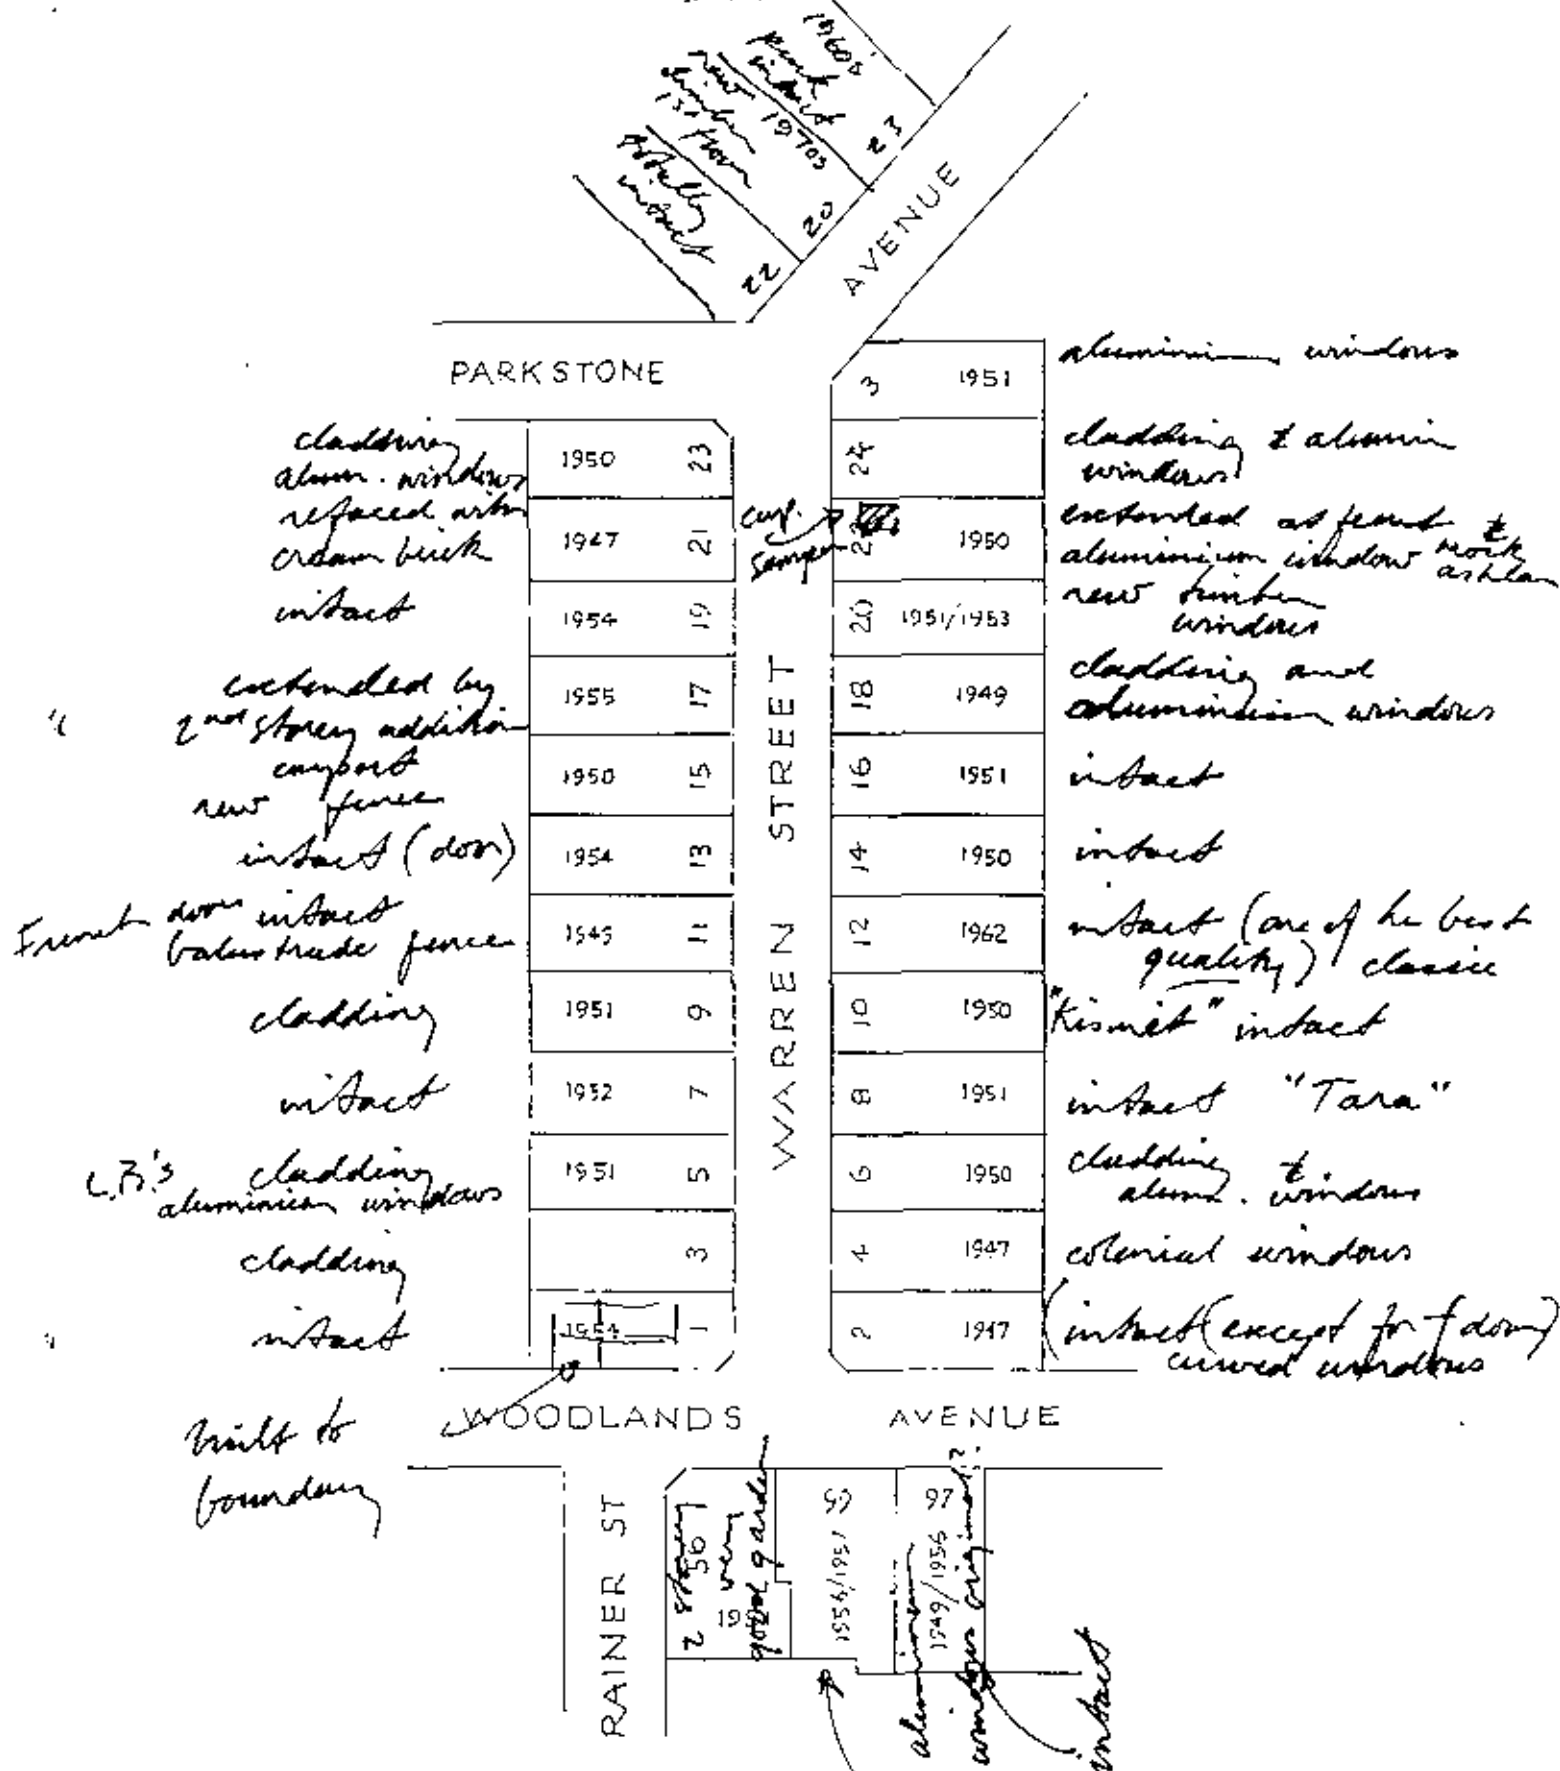 1960s
intact
23
new 1970s
timber
1st floor
20
totally
intact
22
AVENUE
PARKSTONE
3 1951 aluminium windows
cladding
alum. windows 1950 23
24 cladding & alumin
windows
refaced with
cream brick 1947 21
1950 extended at front &
aluminium window mock
ashlar
intact 1954 19
20 1951/1953 new timber
windows
extended by
2nd storey addition 1955 17
18 1949 cladding and
aluminium windows
carport
new fence 1950 15
16 1951 intact
intact (door) 1954 13
14 1950 intact
door intact
balustrade fence 11
12 1962 intact (one of the best
quality) classic
cladding 1951 9
10 1950 "Kismet" intact
intact 1952 7
8 1951 intact "Tara"
cladding
aluminium windows 1951 5
6 1950 cladding &
alum. windows
cladding 3
4 1947 colonial windows
intact 1954 1
2 1947 intact (except for f door)
curved windows
WARREN STREET
built to
boundary
WOODLANDS AVENUE
RAINER ST
2 storey
56
very
good garden
1956/1951
97
1949/1956
aluminium
windows original?
intact